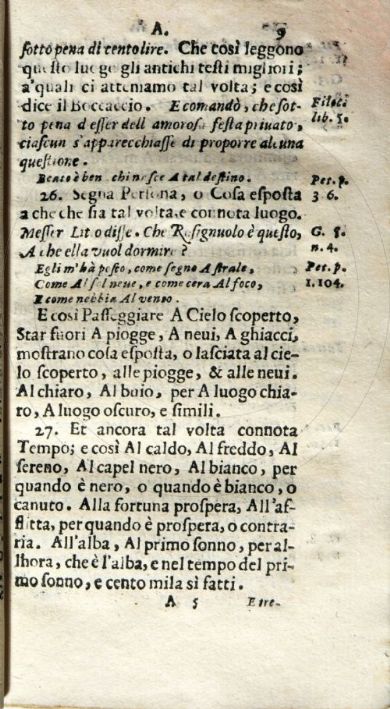 A. 9
ſotto pena di cento lire. Che così leggono
queſto luogo gli antichi teſti migliori;
a'quali ci atteniamo tal volta; e così
dice il Boccaccio. E comandò, che ſot-
to pena d eſſer dell amoroſa feſta priuato,
ciaſcun s'apparecchiaſſe di proporre alcuna
queſtione.
Filoc.
lib. 5.
Beato è ben chi naſce A tal deſtino.
Pet. p.
3 6.
26. Segna Perſona, o Coſa eſpoſta
a che che ſia tal volta, e connota luogo.
Meſſer Lit o diſſe. Che Roſignuolo è queſto,
A che ella vuol dormire?
G. 5.
n. 4.
Egli m'hà poſto, come ſegno A ſtrale,
Come Al ſol neue, e come cera Al foco,
E come nebbia Al vento.
Pet. p.
1. 104.
E così Paſſeggiare A Cielo ſcoperto,
Star fuori A piogge, A neui, A ghiacci,
moſtrano coſa eſpoſta, o laſciata al cie-
lo ſcoperto, alle piogge, & alle neui.
Al chiaro, Al buio, per A luogo chia-
ro, A luogo oſcuro, e ſimili.
27. Et ancora tal volta connota
Tempo; e così Al caldo, Al freddo, Al
ſereno, Al capel nero, Al bianco, per
quando è nero, o quando è bianco, o
canuto. Alla fortuna proſpera, All'af-
flitta, per quando è proſpera, o contra-
ria. All'alba, Al primo ſonno, per al-
lhora, che è l'alba, e nel tempo del pri-
mo ſonno, e cento mila sì fatti.
A 5